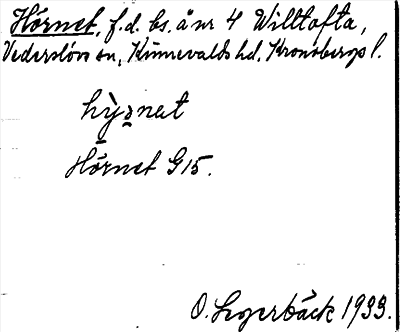 Hörnet, f.d. bs. å nr 4 Willtofta,
Vederslövs sn, Kinnevalds hd, Kronobergs l.
Hörnet G15.
O. Lagerbäck 1933.